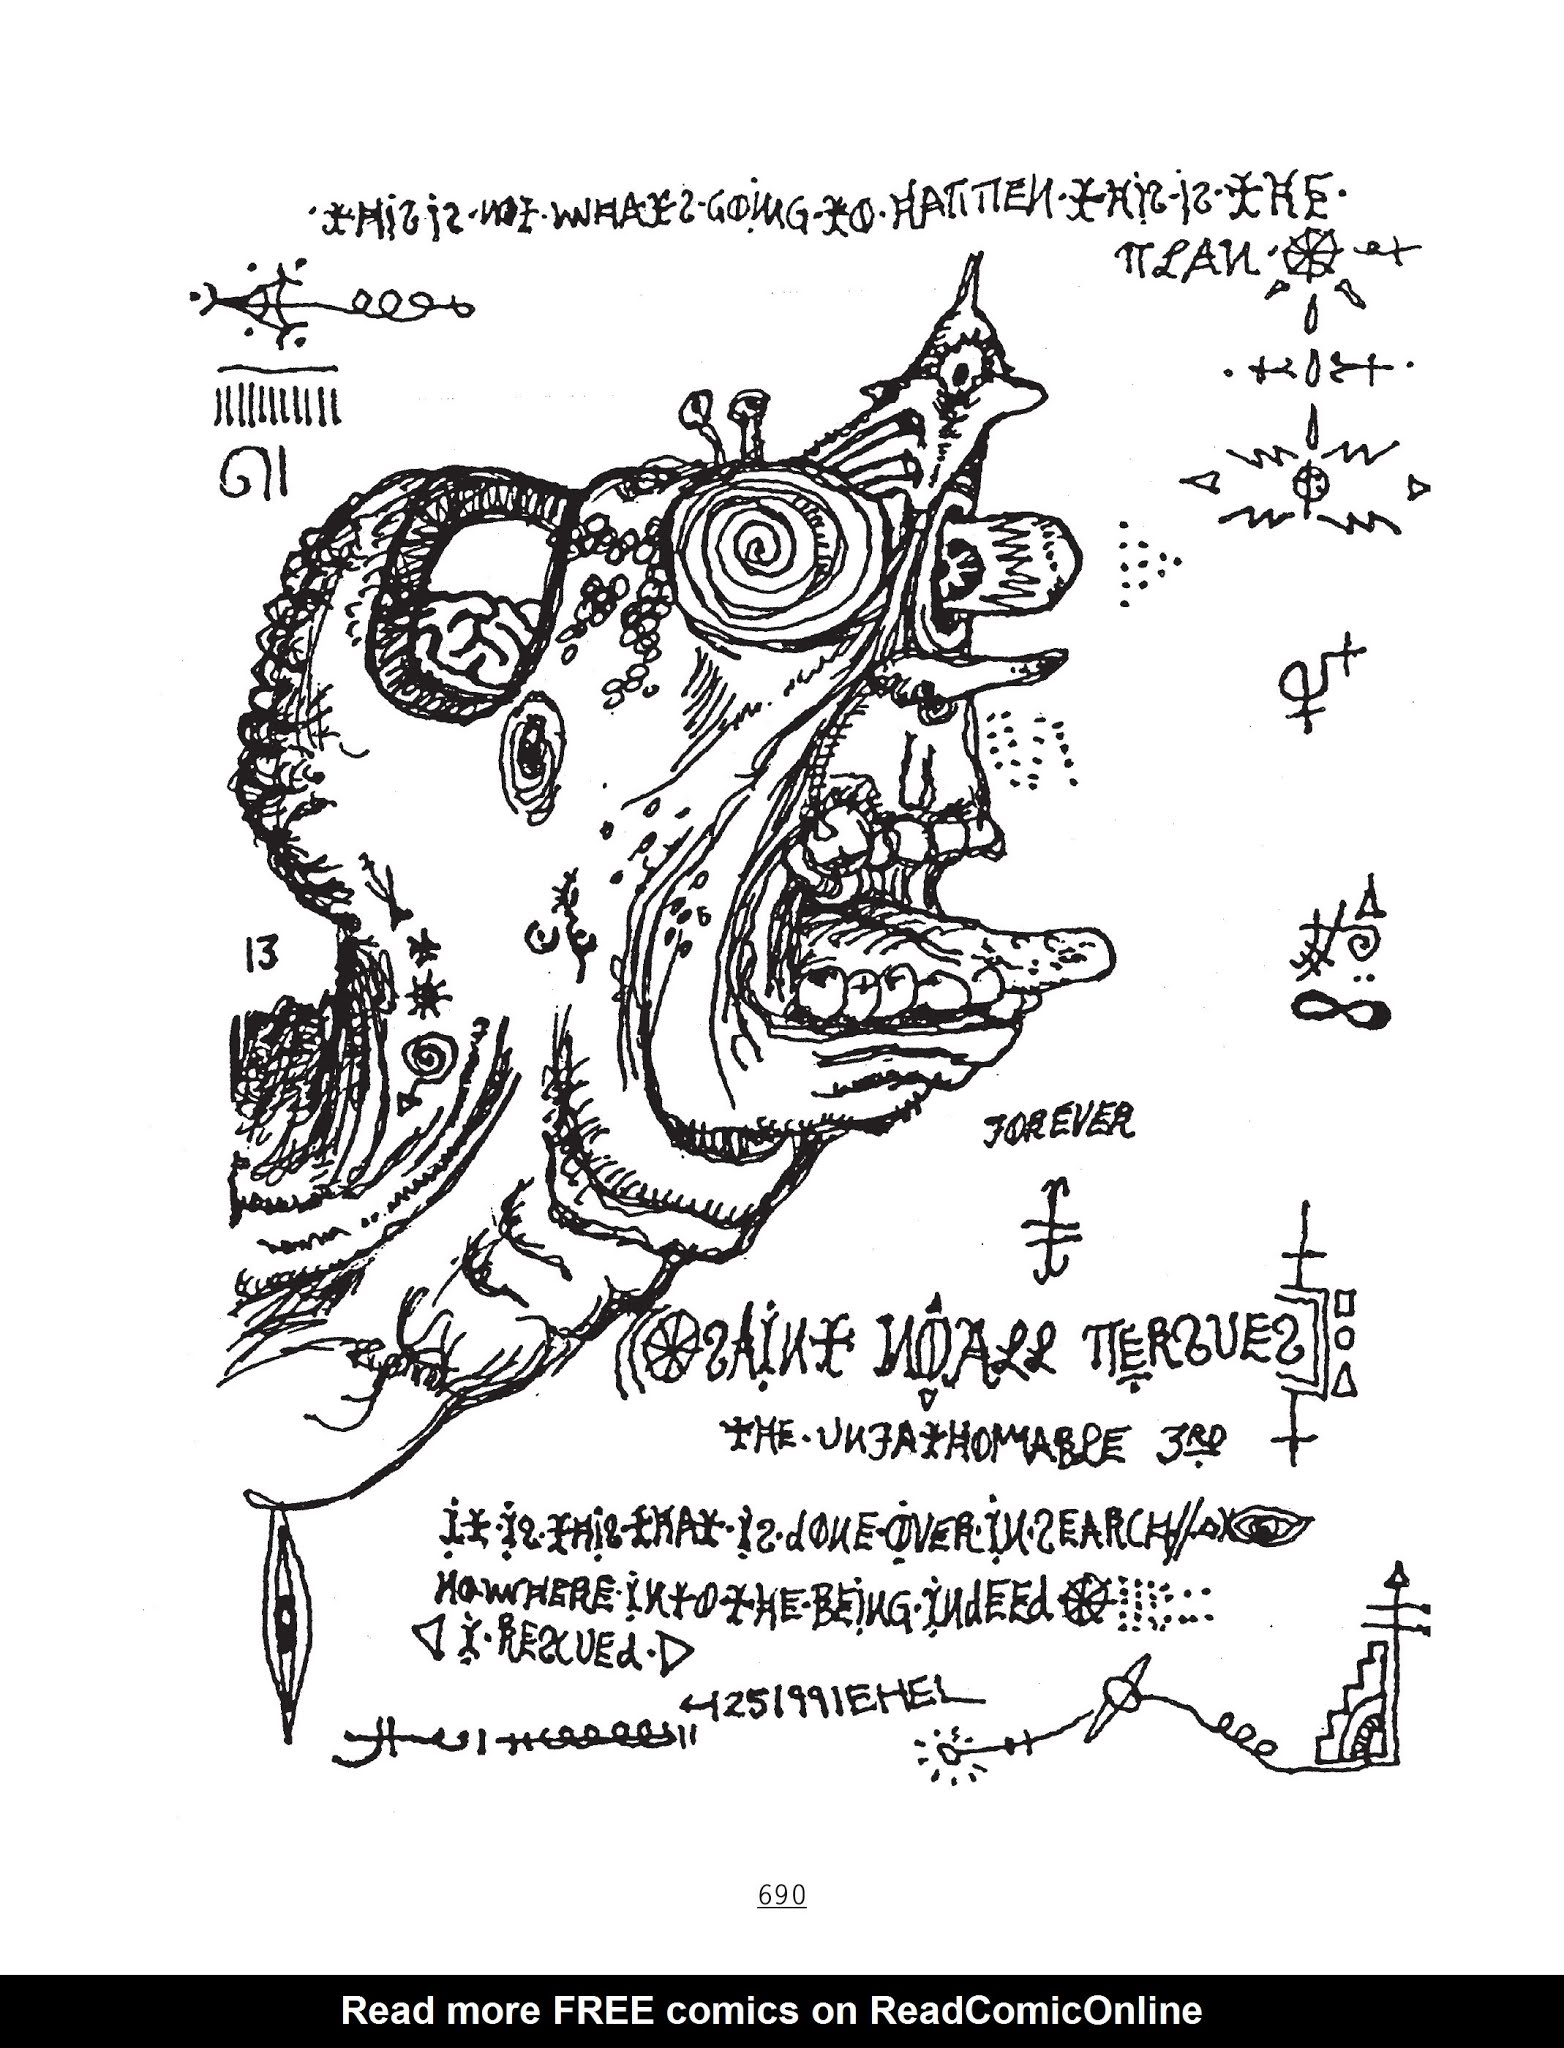 ·THIS·IS·NOT·WHATS·GOING·TO·HAPPEN·THIS·IS·THE·
PLAN
13
FOREVER
SAINT NO ALL PERSUES
THE·UNFATHOMABLE 3RD
IT·IS·THIS·THAT·IS·dONE·OVER·IN·SEARCH//
NOWHERE·INTO·THE·BEING·INdEEd
I·RESCUEd·
4251991EHEL
690
Read more FREE comics on ReadComicOnline